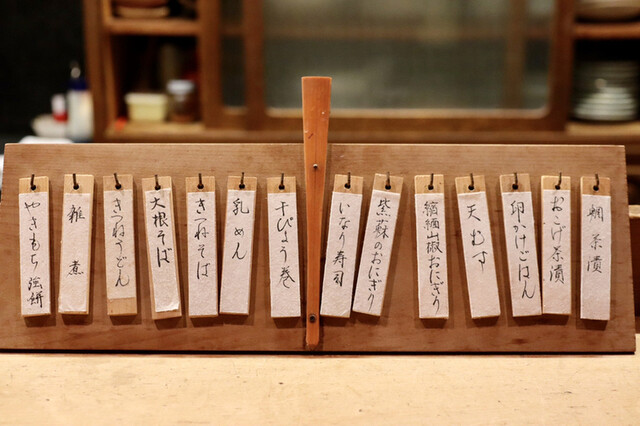 鯛茶漬
おこげ茶漬
卵かけごはん
天むす
縮緬山椒おにぎり
紫蘇のおにぎり
いなり寿司
干ぴょう巻
乳めん
きつねそば
大根そば
きつねうどん
雑煮
やきもち